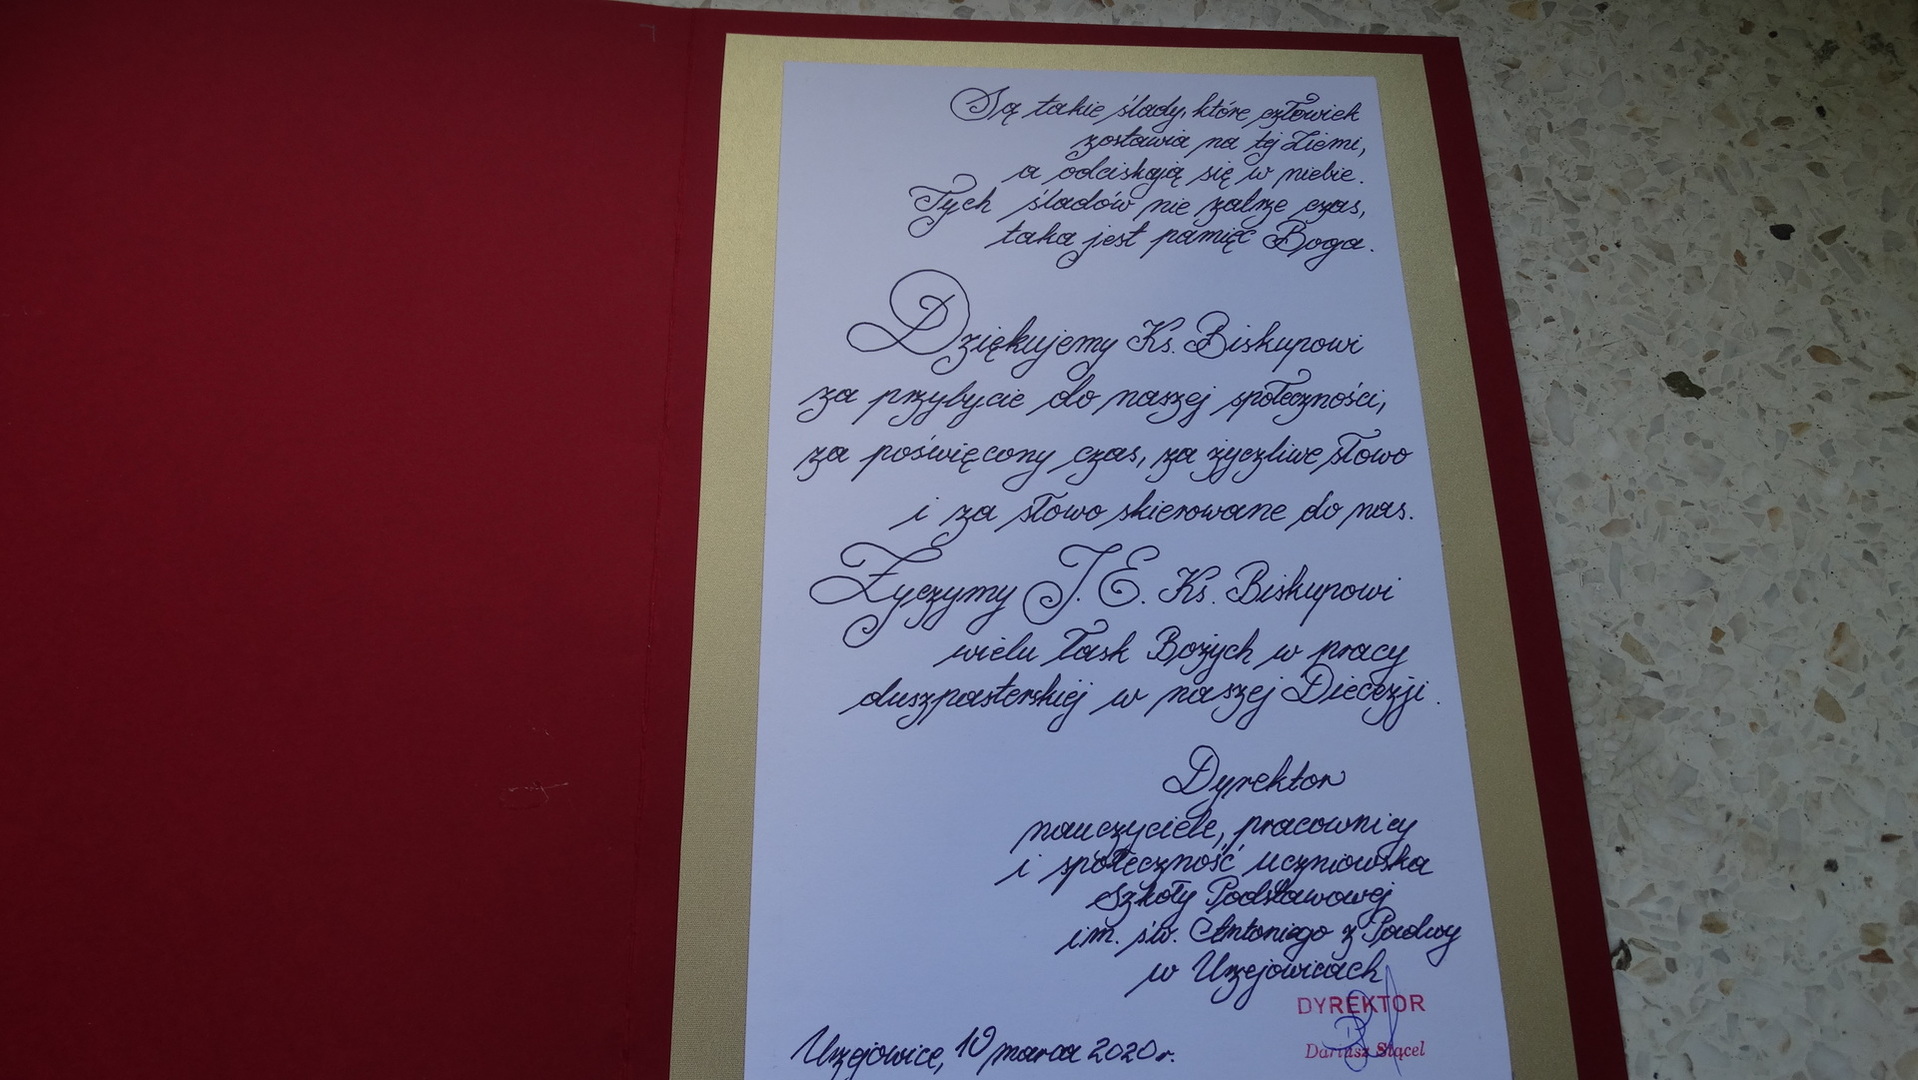 Są takie ślady, które człowiek
zostawia na tej Ziemi,
a odciskają się w niebie.
Tych śladów nie zatrze czas,
taka jest pamięć Boga.
Dziękujemy Ks. Biskupowi
za przybycie do naszej społeczności,
za poświęcony czas, za życzliwe słowo
i za słowo skierowane do nas.
Życzymy J. E. Ks. Biskupowi
wielu łask Bożych w pracy
duszpasterskiej w naszej Diecezji.
Dyrektor
nauczyciele, pracownicy
i społeczność uczniowska
Szkoły Podstawowej
im. św. Antoniego z Padwy
w Urzejowicach
DYREKTOR
Dariusz Stącel
Urzejowice, 10 marca 2020 r.